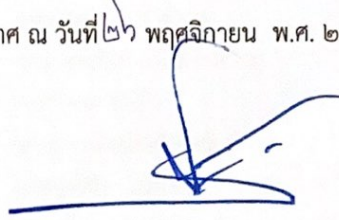 าศ ณ วันที่ ๒๖ พฤศจิกายน พ.ศ. ๒